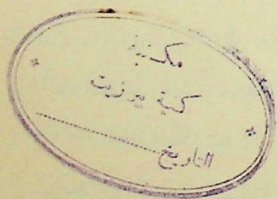 مكتبة
كلية بيرزيت
التاريخ